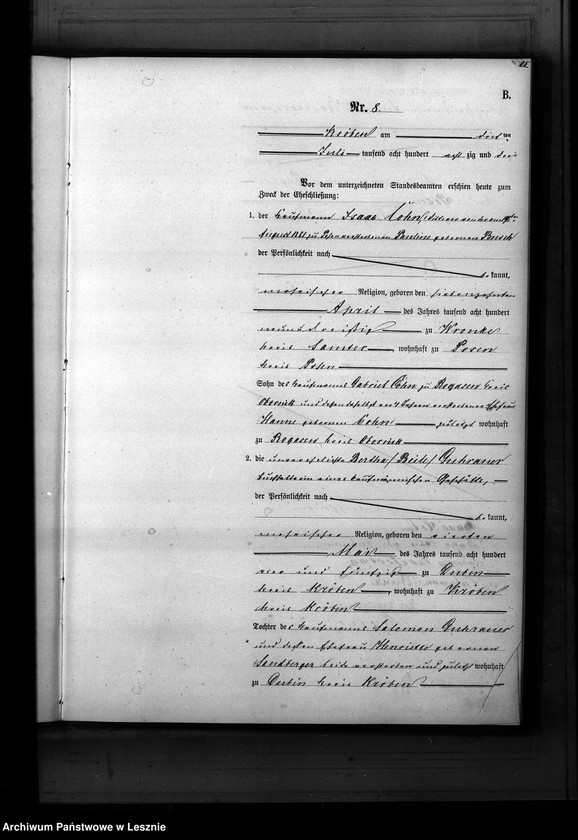 B.
Nr. 8.
Kröben am dritten
Juli tausend acht hundert achtzig und drei
Vor dem unterzeichneten Standesbeamten erschien heute zum
Zweck der Eheschließung:
1. der Kaufmann Isaac Cohn,
August zu Posen verstorbenen Pauline geborenen Busch
der Persönlichkeit nach
be kannt,
mosaischer Religion, geboren den siebenzehnten
April des Jahres tausend acht hundert
neununddreißig zu Wronke
Kreis Samter, wohnhaft zu Posen
Kreis Posen
Sohn des Kaufmanns Gabriel Cohn zu Rogasen Kreis
Obornik und dessen verstorbenen Ehefrau
Hanne geborenen Cohn zuletzt wohnhaft
zu Rogasen Kreis Obornik
2. die unverehelichte Bertha /Beile/ Guhrauer
Buchhalterin eines kaufmännischen Geschäfts,
der Persönlichkeit nach
be kannt,
mosaischer Religion, geboren den vierten
Mai des Jahres tausend acht hundert
vier und fünfzig zu Dubin
Kreis Kröben, wohnhaft zu Kröben
Kreis Kröben
Tochter des Kaufmanns Salomon Guhrauer
und dessen Ehefrau Henriette geborenen
Landberger beide verstorben und zuletzt wohnhaft
zu Dubin Kreis Kröben
Archiwum Państwowe w Lesznie